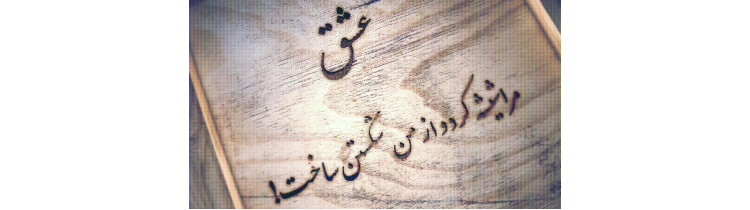 عشق
مرا شیشه کرد و از من شکستن ساخت!